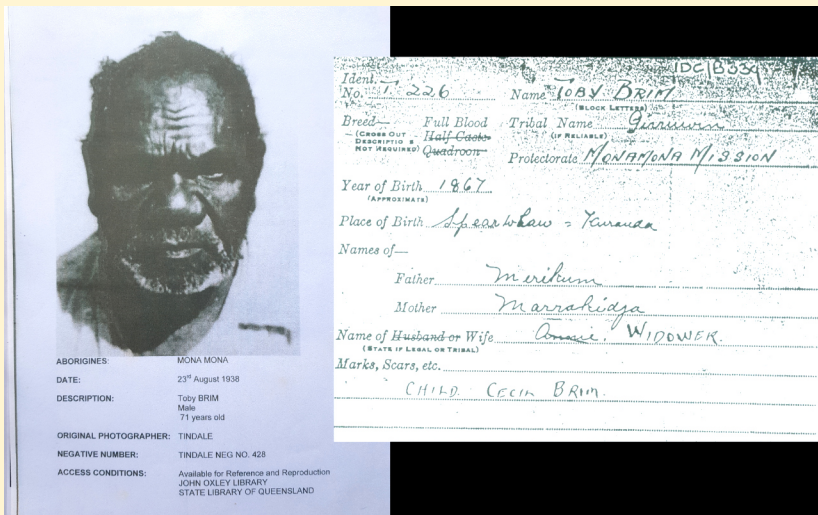 ABORIGINES: MONA MONA
DATE: 23rd August 1938
DESCRIPTION: Toby BRIM
Male
71 years old
ORIGINAL PHOTOGRAPHER: TINDALE
NEGATIVE NUMBER: TINDALE NEG NO. 428
ACCESS CONDITIONS: Available for Reference and Reproduction
JOHN OXLEY LIBRARY
STATE LIBRARY OF QUEENSLAND
Ident. No. 226 Name TOBY BRIM
(BLOCK LETTERS)
Breed— Full Blood Tribal Name
(CROSS OUT DESCRIPTIONS NOT REQUIRED) Half Caste (IF RELIABLE)
Quadroon Protectorate MONAMONA MISSION
Year of Birth 1867
(APPROXIMATE)
Place of Birth Kuranda
Names of—
Father Merikum
Mother Marrakidja
Name of Husband or Wife Annie. WIDOWER.
(STATE IF LEGAL OR TRIBAL)
Marks, Scars, etc.
CHILD CECIL BRIM.